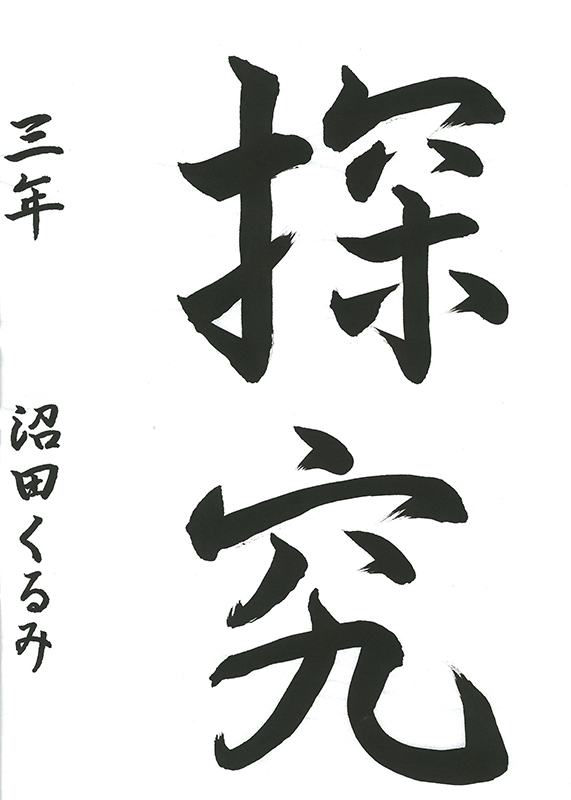 探究
三年 沼田くるみ